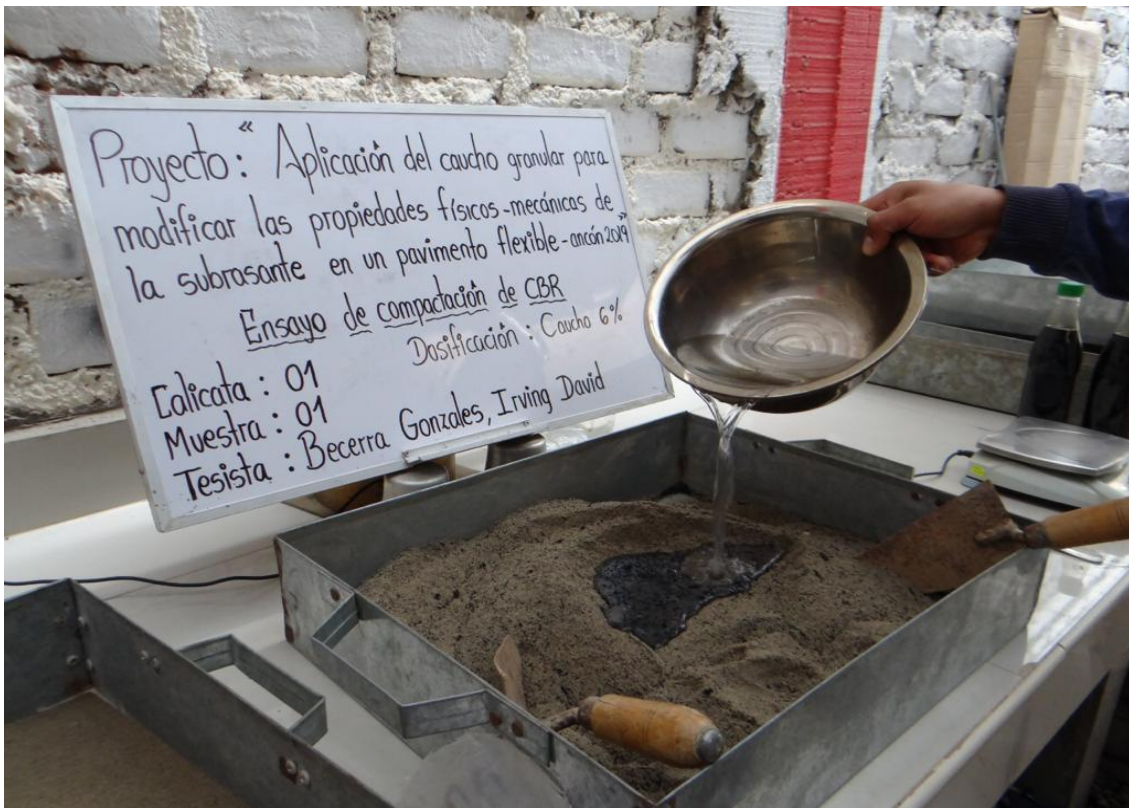 Proyecto: " Aplicación del caucho granular para
modificar las propiedades físicos-mecánicas de
la subrasante en un pavimento flexible - ancón 2019"
Ensayo de compactación de CBR
Dosificación : Caucho 6%
Calicata : 01
Muestra : 01
Tesista : Becerra Gonzales, Irving David